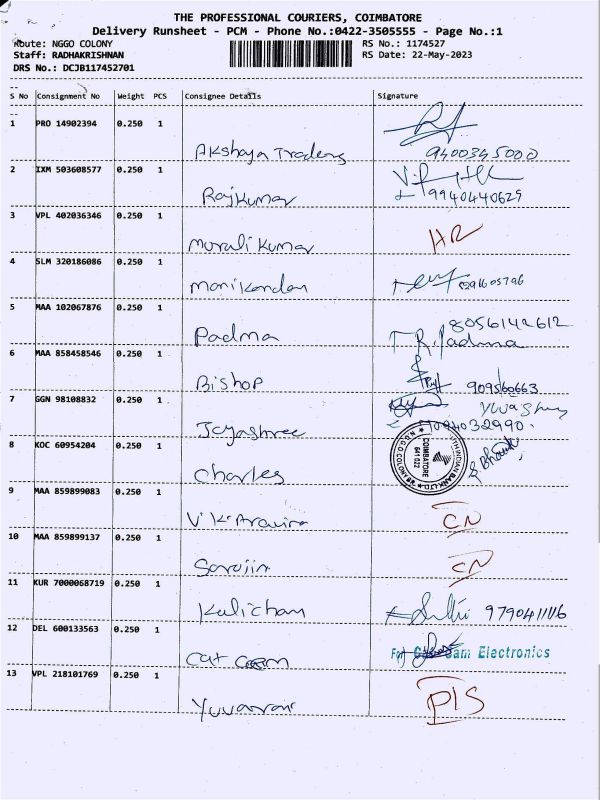 THE PROFESSIONAL COURIERS, COIMBATORE
Delivery Runsheet - PCM - Phone No.:0422-3505555 - Page No.:1
Route: NGGO COLONY RS No.: 1174527
Staff: RADHAKRISHNAN RS Date: 22-May-2023
DRS No.: DCJB117452701
S No Consignment No Weight PCS Consignee Details Signature
1 PRO 14902394 0.250 1
Akshaya Traders 9400345000
2 IXM 503608577 0.250 1
RajKumar 9940440629
3 VPL 402036346 0.250 1
murali kumar HR
4 SLM 320186086 0.250 1
manikandan
5 MAA 102067876 0.250 1 8056142612
Padma T.R. Padma
6 MAA 858458546 0.250 1
Bishop
7 GGN 98108832 0.250 1
Jayashree 9094032990
8 KOC 60954204 0.250 1 COIMBATORE 641 022
Charles
9 MAA 859899083 0.250 1
V K CN
10 MAA 859899137 0.250 1
CN
11 KUR 7000068719 0.250 1
Kalicham
12 DEL 600133563 0.250 1
Cat For Sani Electronics
13 VPL 218101769 0.250 1
PIS